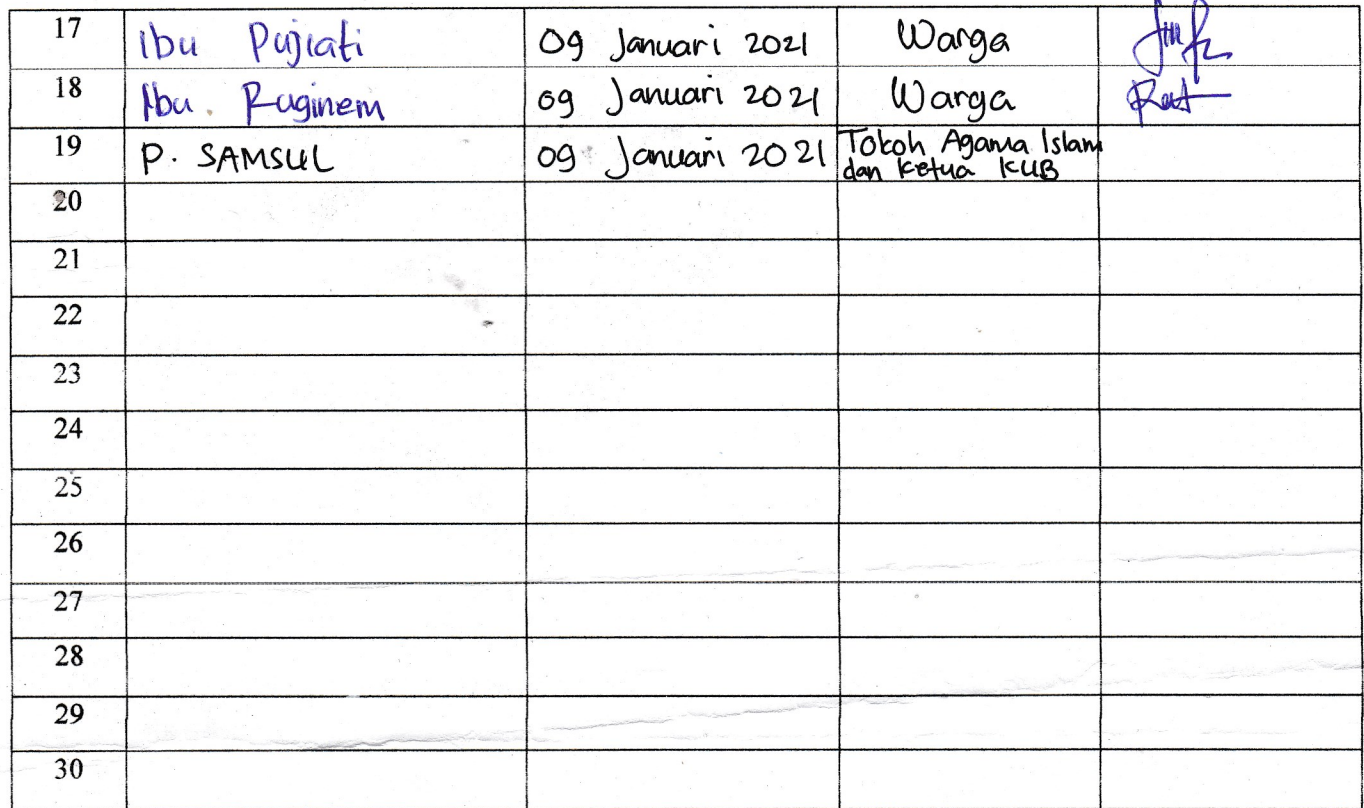 17 Ibu Pujiati 09 Januari 2021 Warga
18 Ibu. Ruginem 09 Januari 2021 Warga
19 P. SAMSUL 09 Januari 2021 Tokoh Agama Islam
dan Ketua KUB
20
21
22
23
24
25
26
27
28
29
30